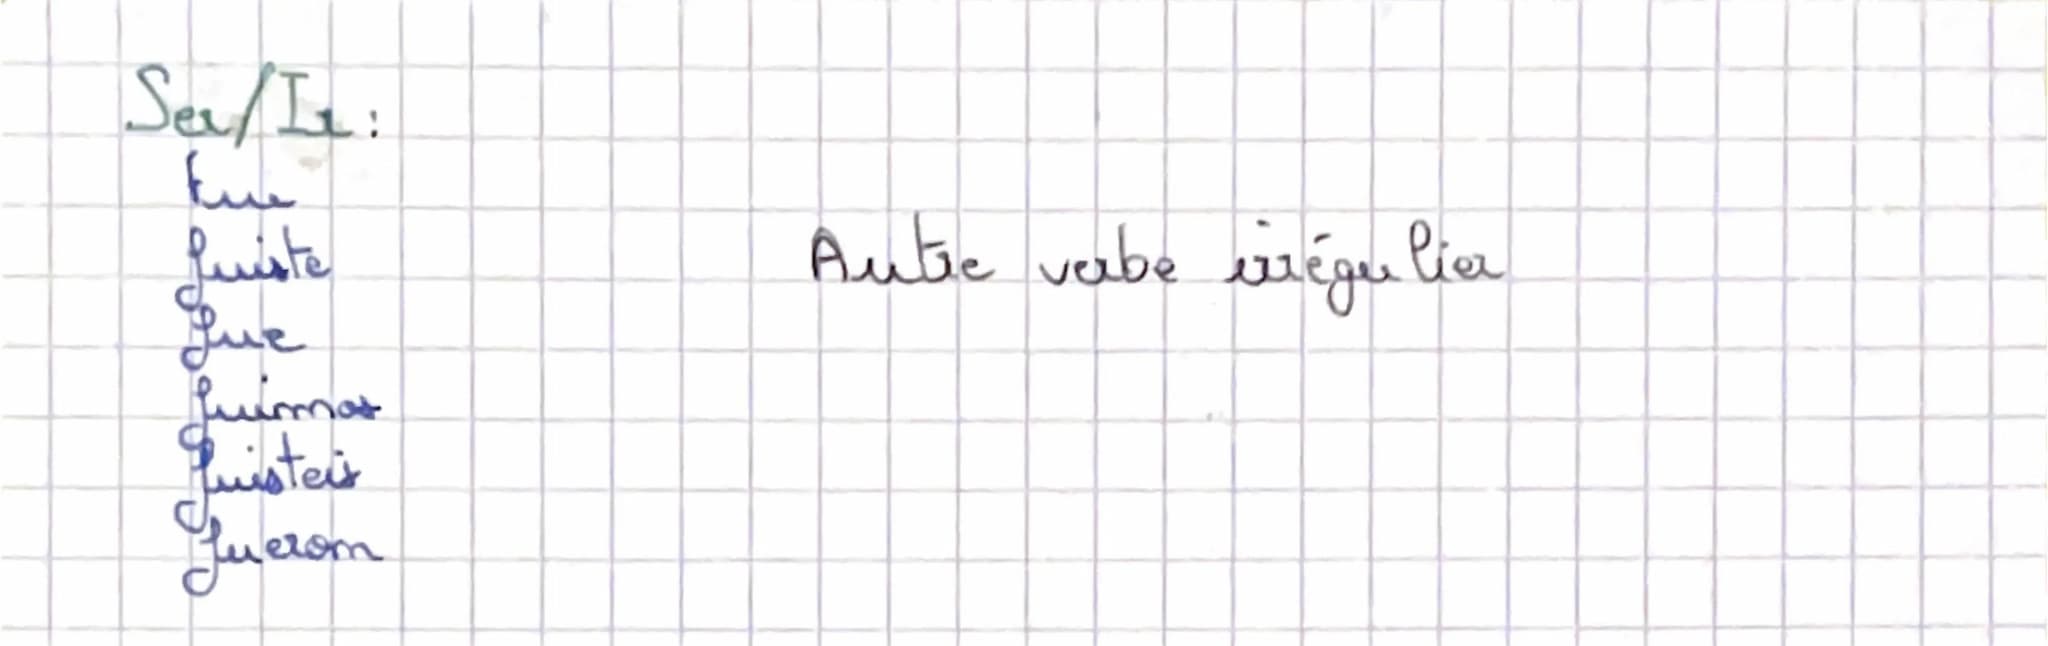 Ser/Ir :
fuiste
fue
Autre verbe irrégulier
fuimos
fuisteis
fueron